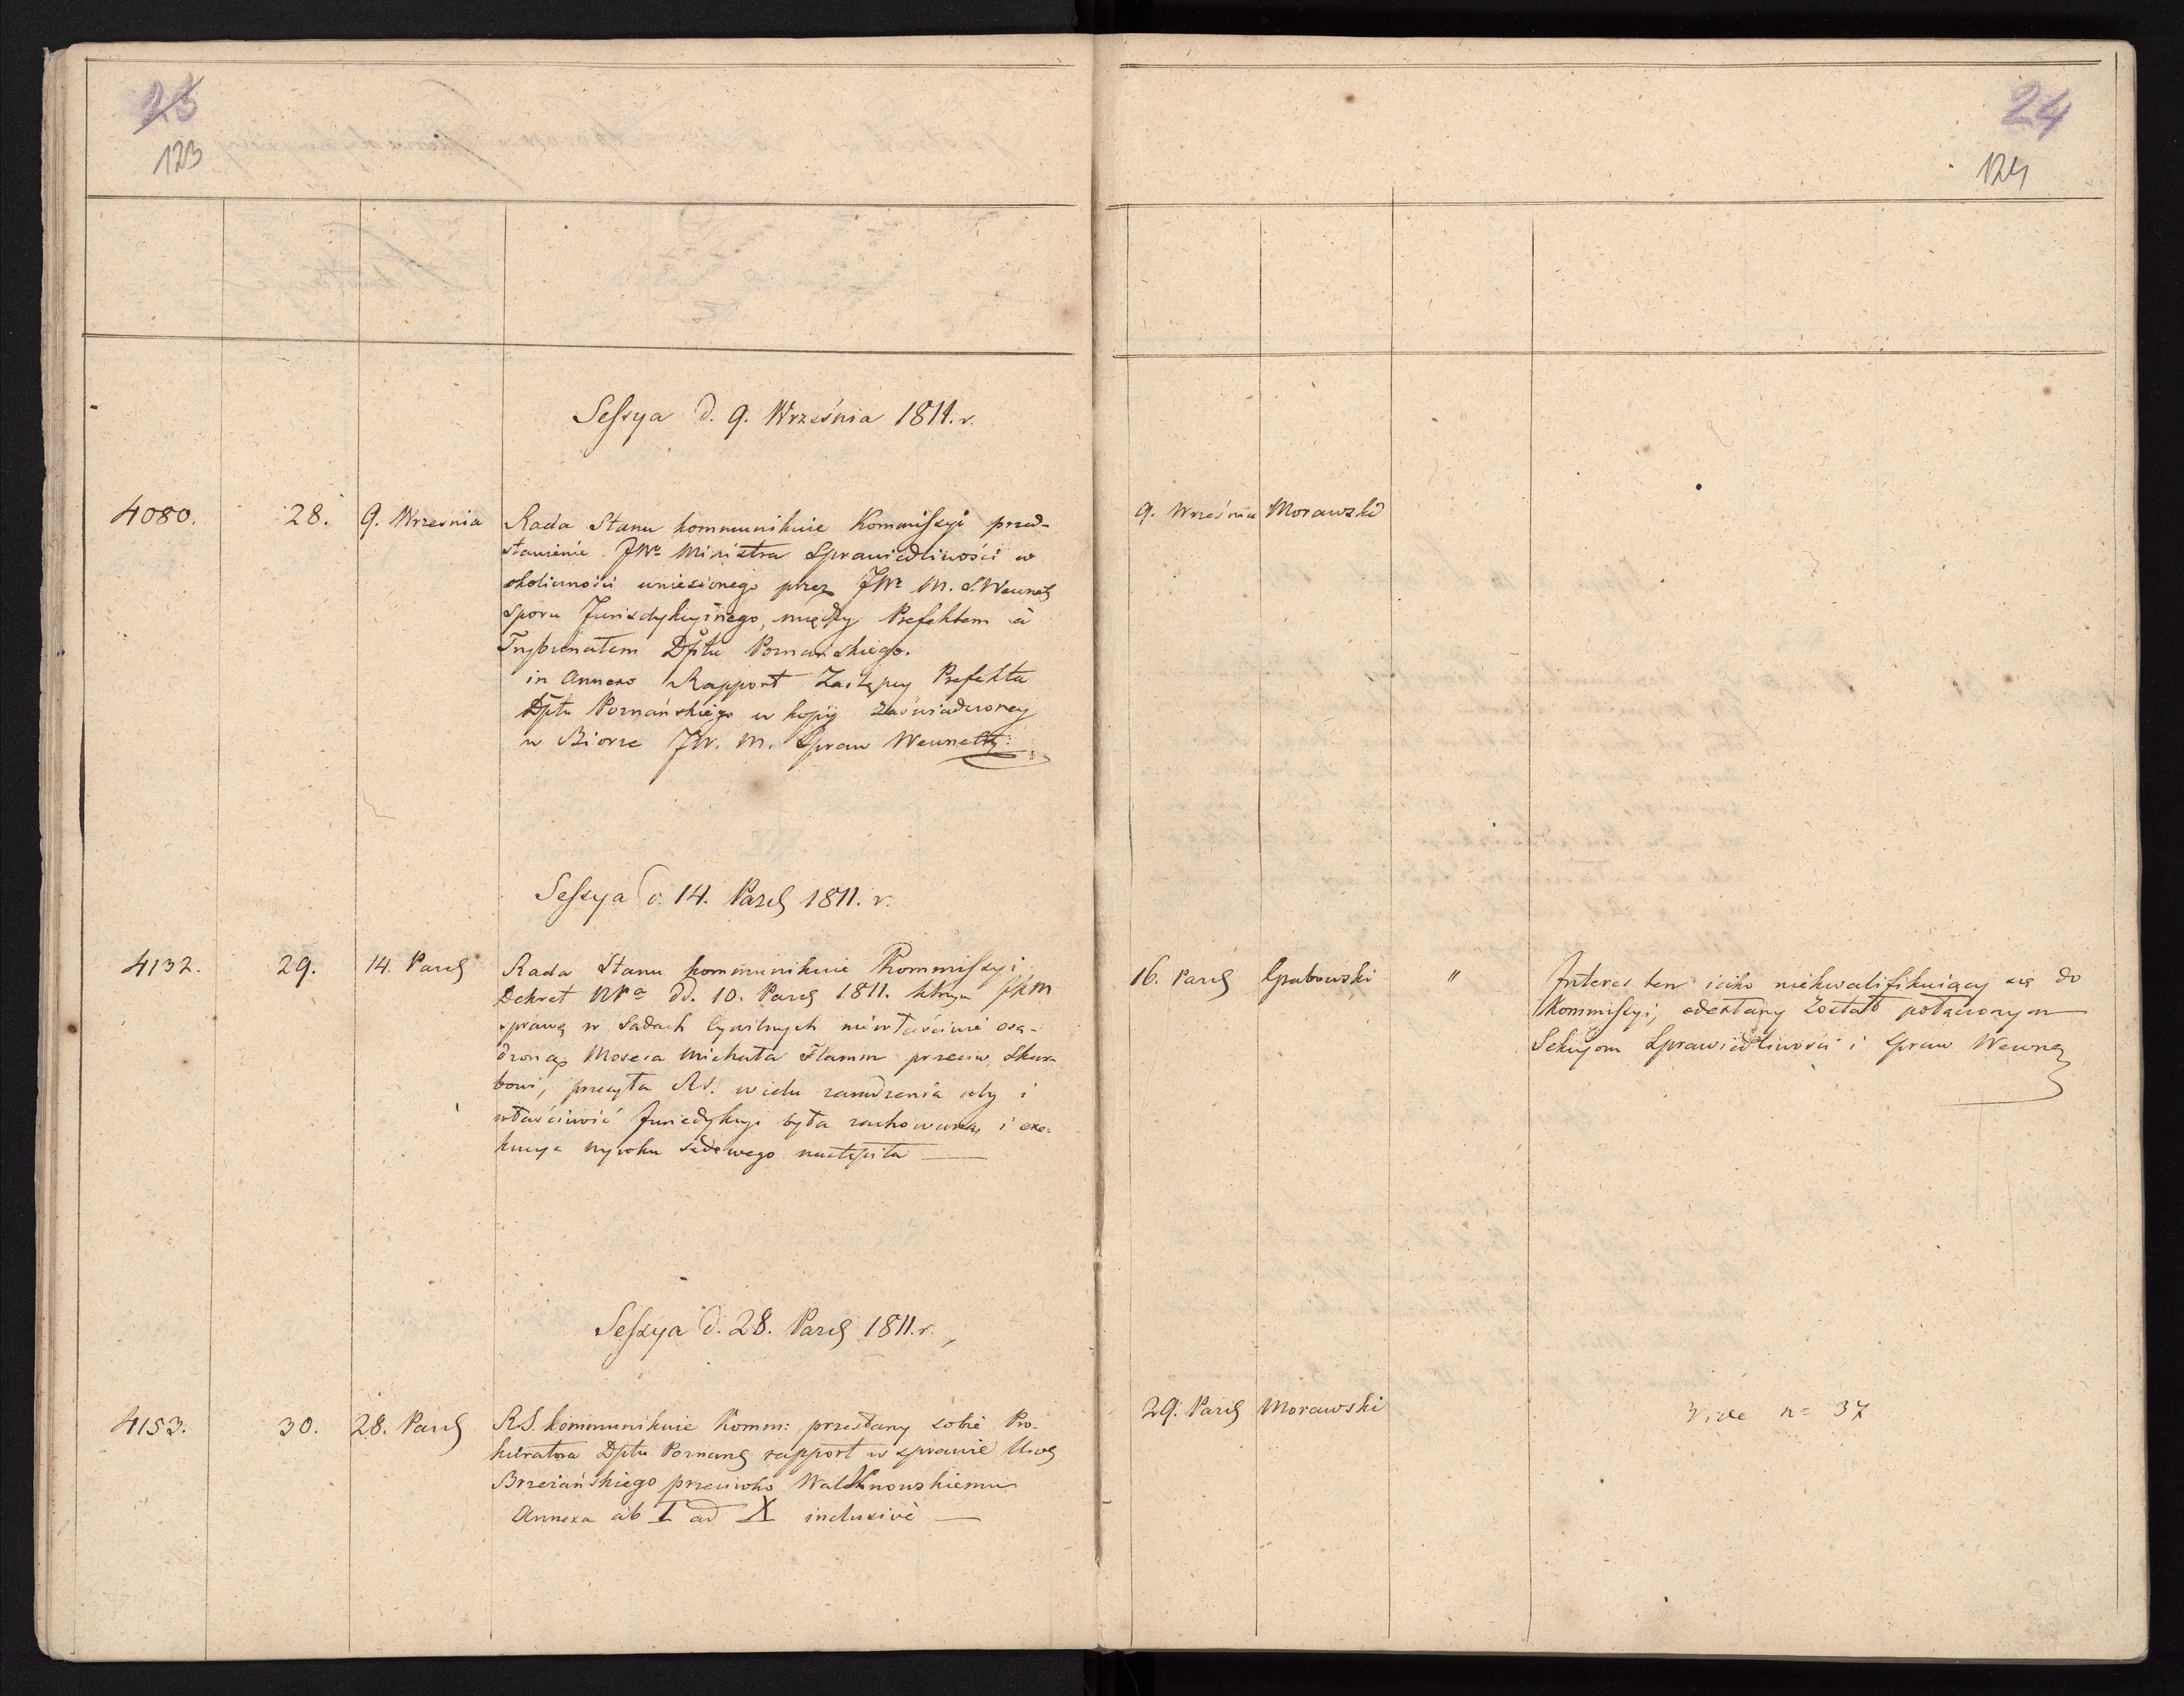 23
123
24
124
Sessya d. 9. Września 1811. r.
4080. 28. 9. Września
Rada Stanu kommunikuie Kommissyi przed-
stawienie JWo Ministra Sprawiedliwości w
okoliczności wniesionego przez JWo M. S. Wewnet
sporu Jurisdykcyinego, między Prefektem a
Trybunałem Dptu Poznańskiego.
in Annexo Rapport Zastępcy Prefekta
Dptu Poznańskiego w kopij zaświadczoney
w Biorze JW. M. Spraw Wewnetr:
9. Września Morawski
Sessya d. 14. Pazd 1811. r.
4132. 29. 14. Pazd
Rada Stanu kommunikuie Kommissyi
Dekret NPa dd. 10. Pazd 1811. którym JKM
sprawę w Sądach Cywilnych niewłaściwie osą-
dzoną Mosesa Michała Flamm przeciw Skar-
bowi, przesyła RS. w celu zarządzenia aby i
właściwość Jurisdykcyi była zachowaną i exe-
kucya wyroku sądowego nastąpiła —
16. Pazd Grabowski "
Interes ten iako niekwalifikuiący się do
Kommissyi, odesłany został połączonym
Sekcyom Sprawiedliwości i Spraw Wewnę
Sessya d. 28. Pazd 1811. r.
4153. 30. 28. Pazd
RS. kommunikuie Komm: przesłany sobie Pro-
kuratora Dptu Poznans rapport w sprawie
Brzezańskiego przeciwko Walknowskiemu
Annexa ab I ad X inclusive —
29. Pazd Morawski
Vide no 37